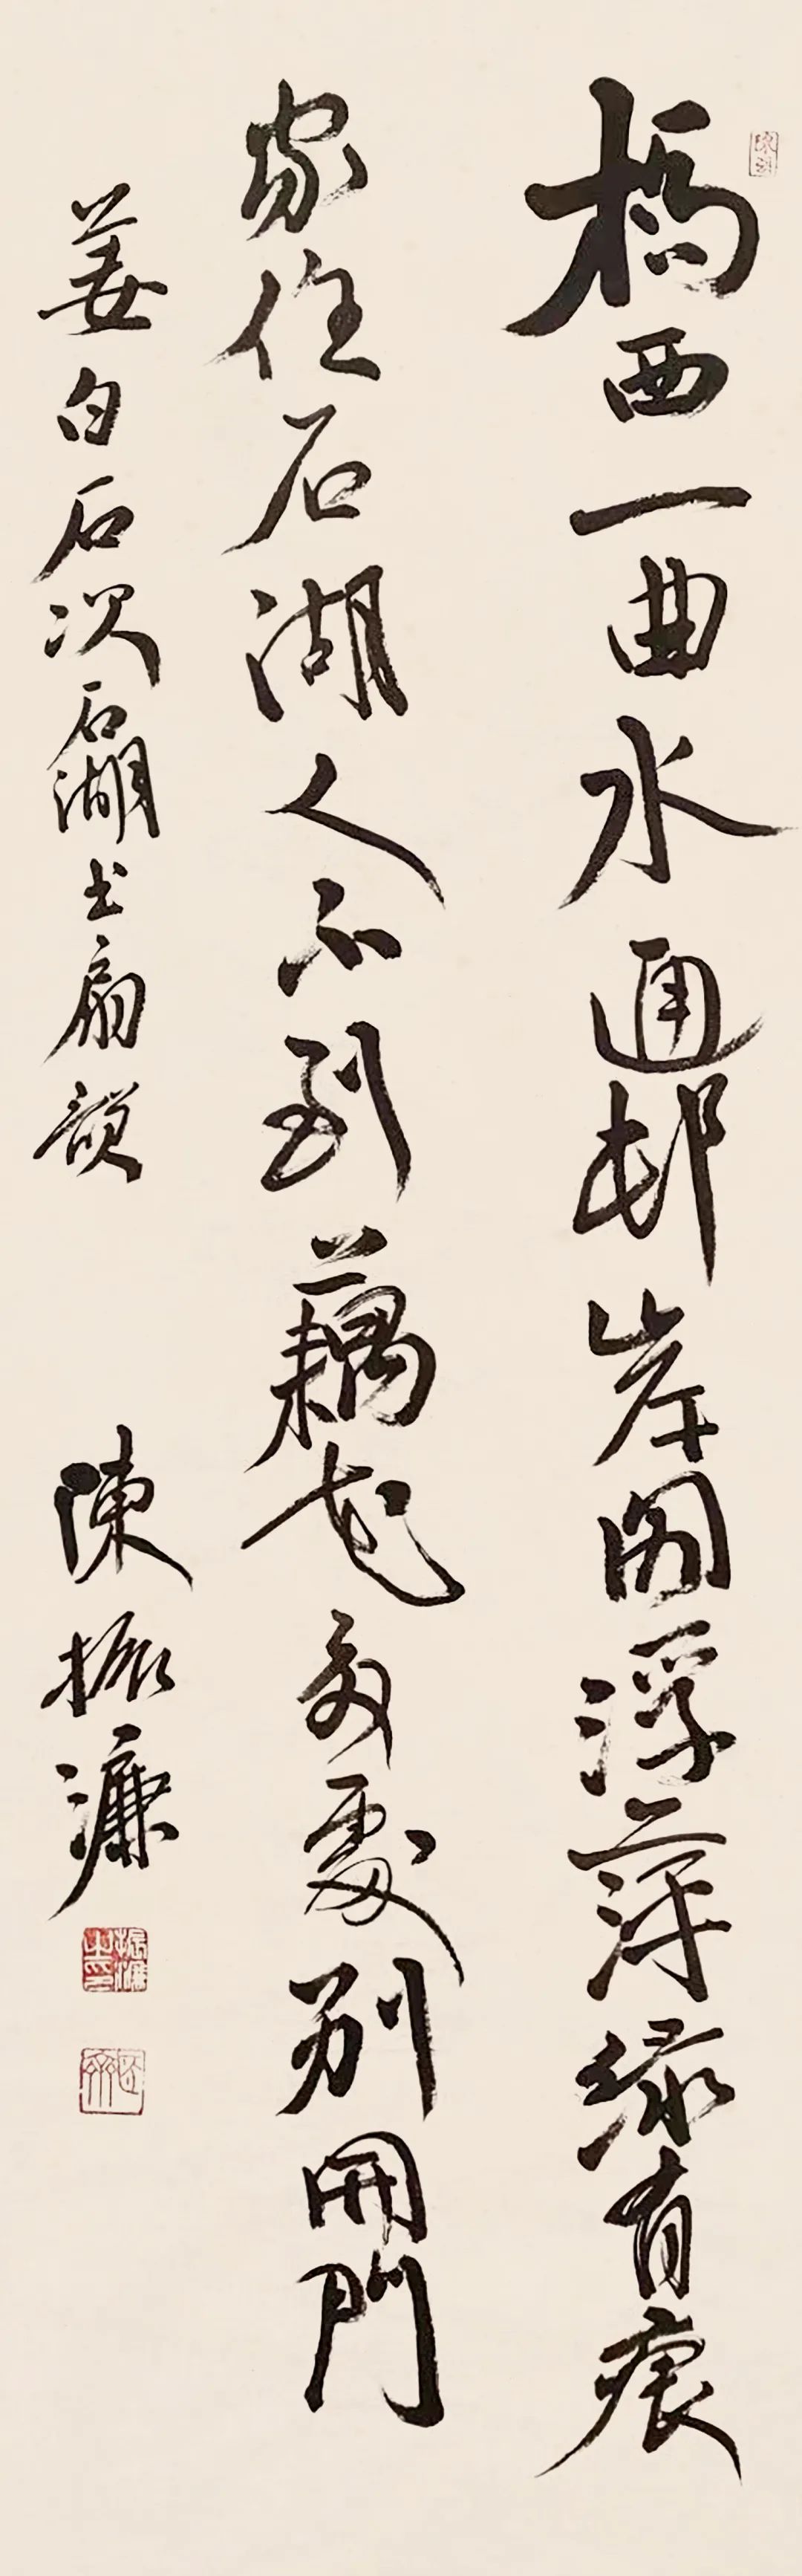 橋西一曲水通邨岸閣浮萍綠有痕
家住石湖人不到藕花多處別開門
姜白石次石湖書扇韻
陳振濂
振濂之印